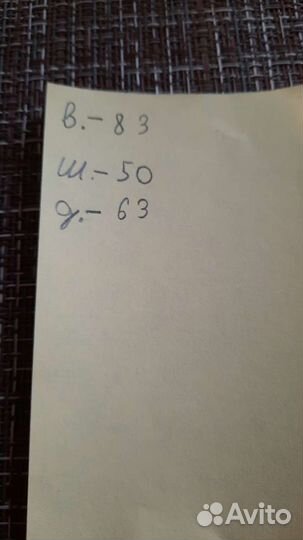 В. – 83
Ш. – 50
Д. – 63
Avito